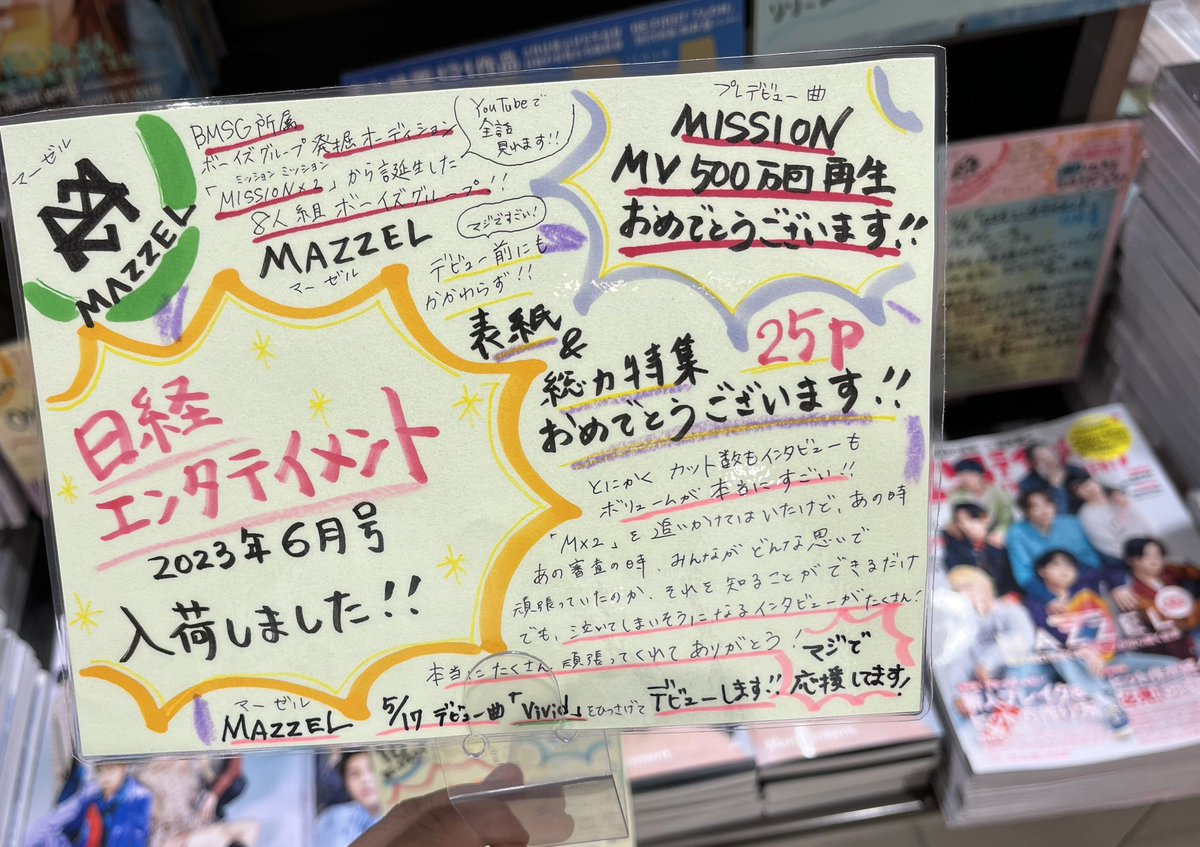 マーゼル
MAZZEL
BMSG所属
ボーイズグループ発掘オーディション
ミッション ミッション
「MISSION×2」から誕生した
8人組 ボーイズグループ!!
MAZZEL
マーゼル
YouTubeで
全話
見れます!!
マジですごい!
デビュー前にも
かかわらず!!
プレデビュー曲
MISSION
MV 500万回再生
おめでとうございます!!
表紙
&
総力特集 25P
おめでとうございます!!
日経
エンタテイメント
2023年6月号
入荷しました!!
とにかく カット数もインタビューも
ボリュームが本当にすごい!!
「M×2」を追いかけてはいたけど、あの時
あの審査の時、みんながどんな思いで
頑張っていたのか、それを知ることができるだけ
でも、泣いてしまいそうになるインタビューがたくさん!
本当にたくさん 頑張ってくれて ありがとう!
マジで
応援してます!
マーゼル
MAZZEL 5/17 デビュー曲「Vivid」をひっさげて デビューします!!